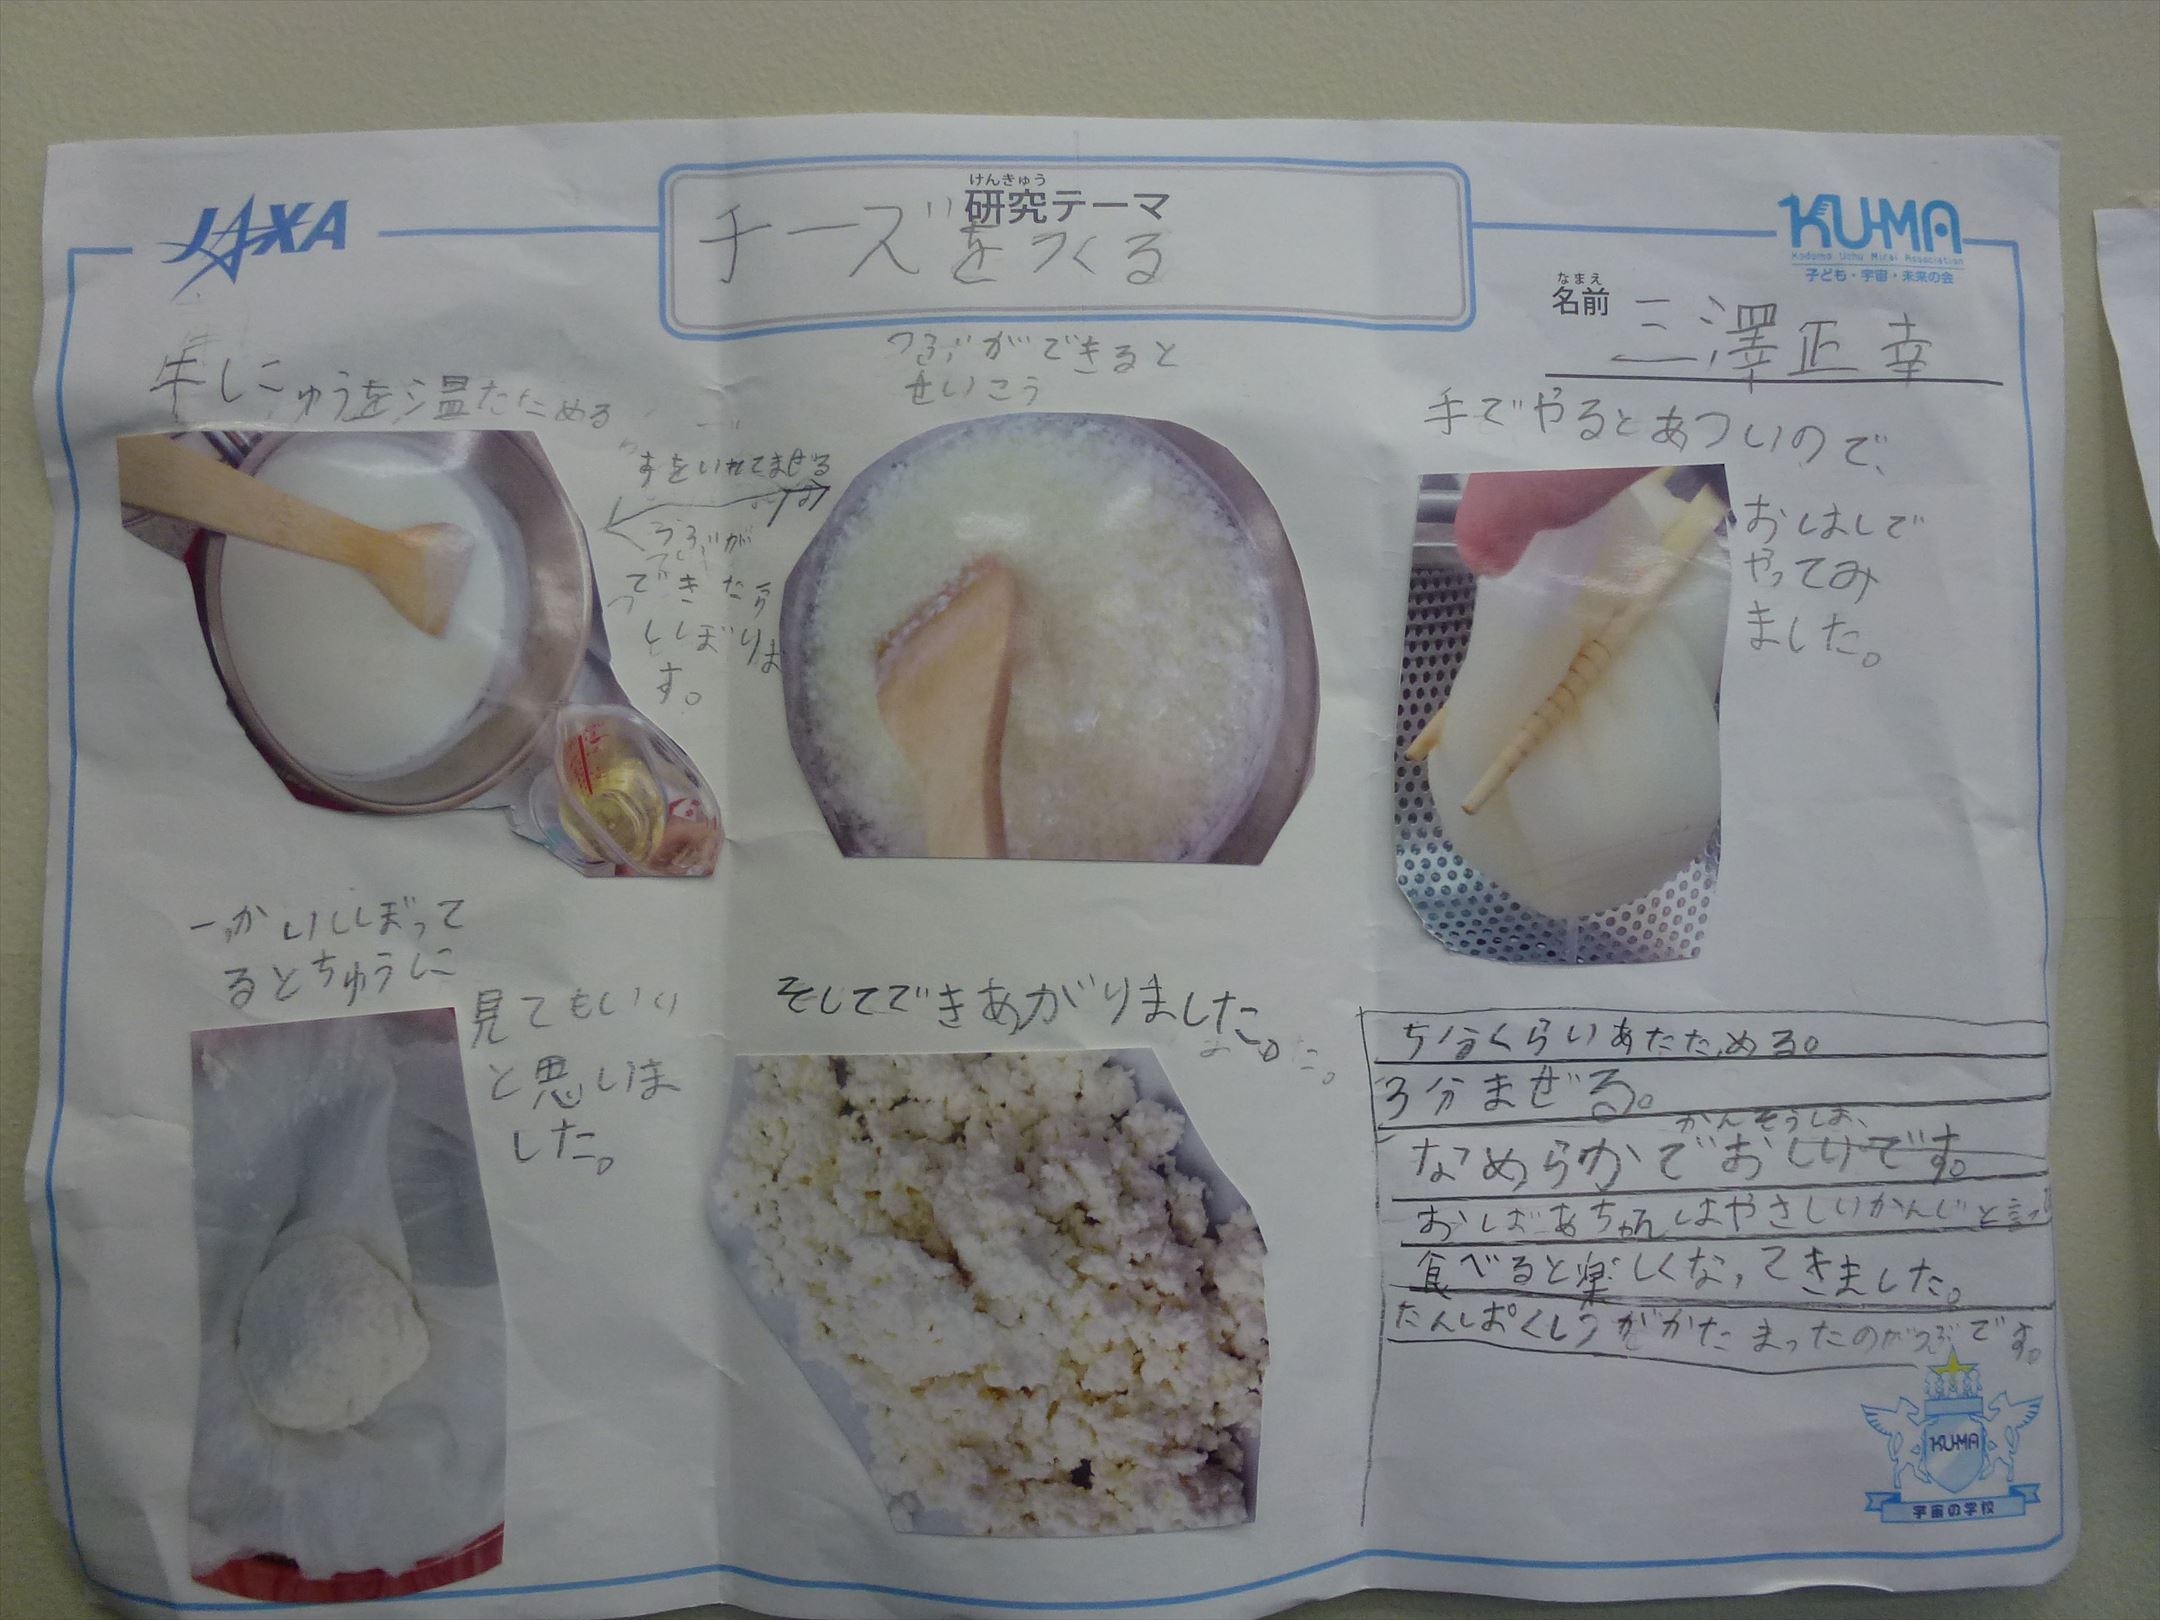 JAXA
けんきゅう
研究テーマ
チーズをつくる
KU-MA
Kodomo Uchu Mirai Association
子ども・宇宙・未来の会
なまえ
名前
三澤正幸
牛にゅうを温ためる
すをいれてまぜる
つぶが
できたら
しぼりま
す。
つぶができると
せいこう
手でやるとあついので、
おはしで
やってみ
ました。
一かいしぼって
るとちゅうに
見てもいい
と思いま
した。
そしてできあがりました。
5分くらいあたためる。
3分まぜる。
かんそうは、
なめらかでおしいです。
おばあちゃんはやさしいかんじと言っ
食べると楽しくなってきました。
たんぱくしつがかたまったのがつぶです。
KU-MA
宇宙の学校